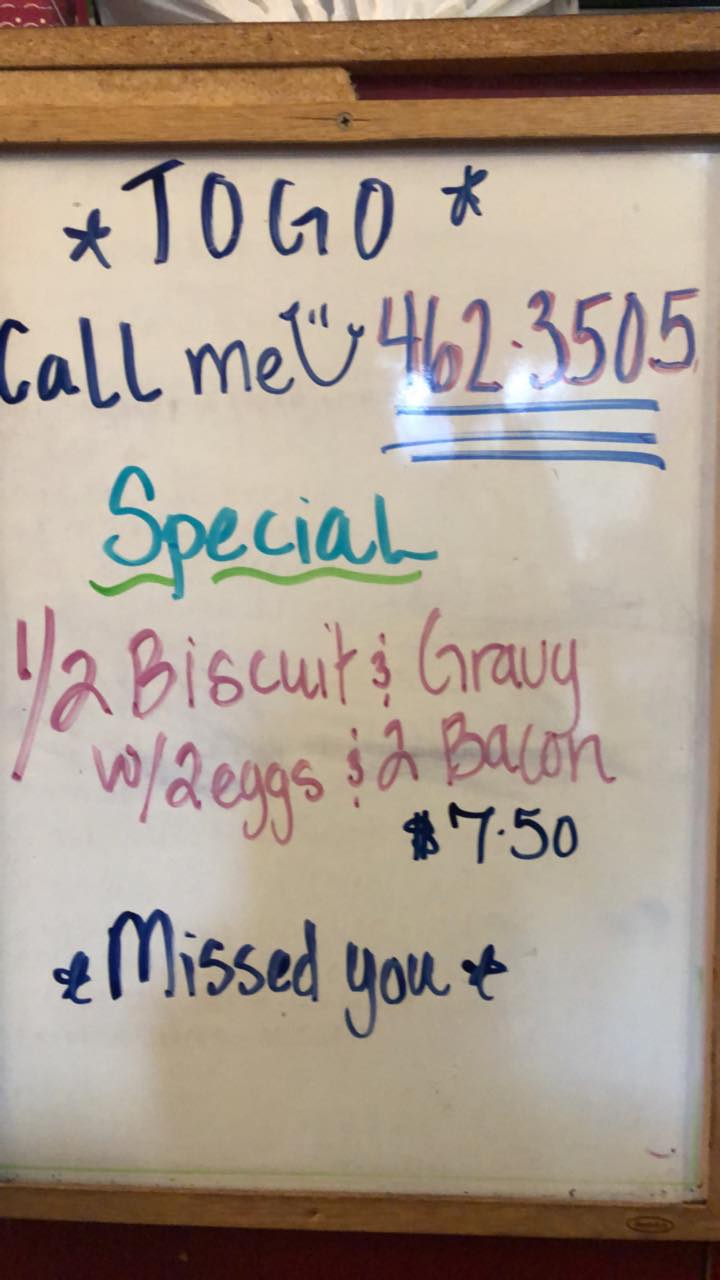 * TOGO *
Call me 462.3505
Special
1/2 Biscuit & Gravy
w/2 eggs & 2 Bacon
$7.50
* Missed you *